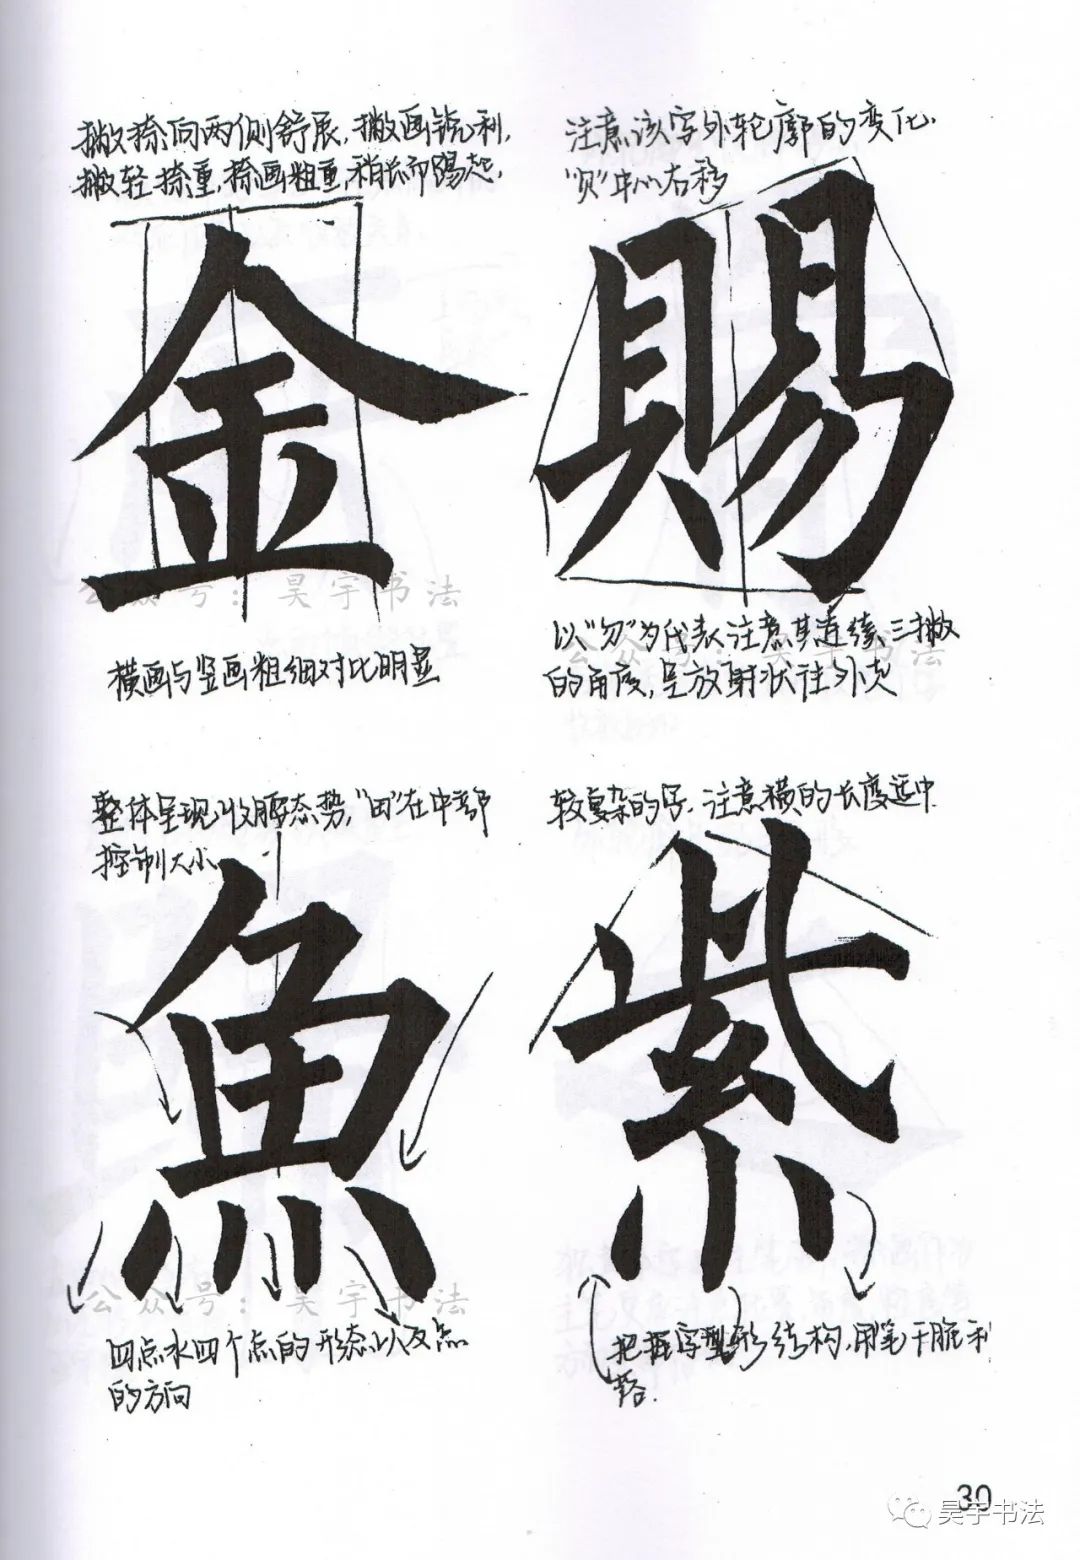 撇捺向两侧舒展,撇画锐利,
撇轻捺重,捺画粗重,稍长而踢起,
金
公众号:昊宇书法
横画与竖画粗细对比明显
注意该字外轮廓的变化.
"贝"中心右移
賜
以"勿"为代表注意其连续三撇
的角度,呈放射状往外
公众号:昊宇书法
整体呈现收腰态势,"田"在中部
控制大小
魚
公众号:昊宇书法
四点水四个点的形态以及点
的方向
较复杂的字.注意横的长度适中
紫
把握字型形结构,用笔干脆利
落.
30
昊宇书法